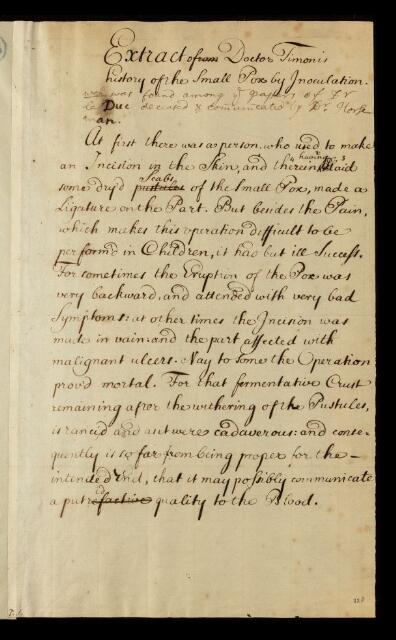 Extract of from Doctor Timonis
history of the Small Pox by Inoculation.
was found among ye papers of Dr
le Duc deceased & communicated by Dr. Horse
man.
At first there was a person who used to make
an Incision in the Skin, and therein having laid
some dry'd pustules Scabs of the Small Pox, made a
Ligature on the Part. But besides the Pain,
which makes this operation difficult to be
perform'd in Children, it had but ill Success.
For sometimes the Eruption of the Pox was
very backward, and attended with very bad
Symptoms: at other times the Incision was
made in vain: and the part affected with
malignant ulcers. Nay to some the Operation
prov'd mortal. For that fermentative Crust
remaining after the withering of the Pustules,
is rancid and as it were cadaverous: and conse-
quently is so far from being proper for the
intended End, that it may possibly communicate
a putrefactive quality to the Blood.